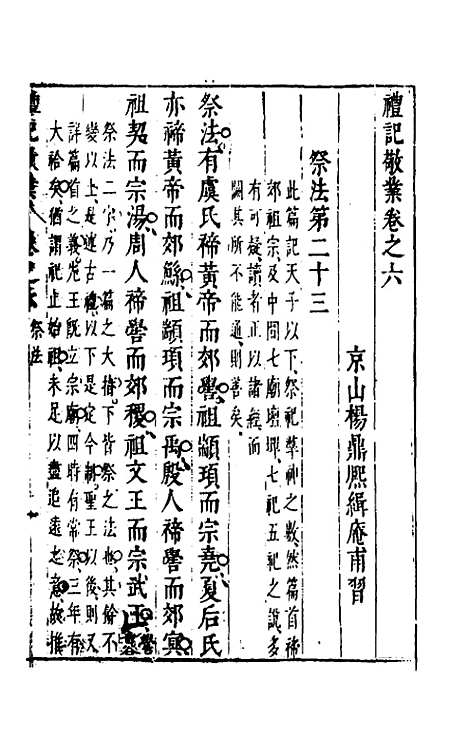 禮記敬業卷之六
京山楊鼎熙緝庵甫習
祭法第二十三
此篇記天子以下祭祀羣神之數然篇首禘
郊祖宗及中間七廟壇墠七祀五祀之說多
有可疑讀者正以諸經而
闕其所不能通則善矣
祭法有虞氏禘黃帝而郊嚳祖顓頊而宗堯夏后氏
亦禘黃帝而郊鯀祖顓頊而宗禹殷人禘嚳而郊冥
祖契而宗湯周人禘嚳而郊稷祖文王而宗武王
祭法二字乃一篇之大指下皆祭之法也其餘不
幾以上是述古禮以下是定今制聖王以後則又
詳篇首之義先王既立宗廟四時有常祭三年有
大祫矣猶謂祀止始祖未足以盡追遠之意故推
祭法